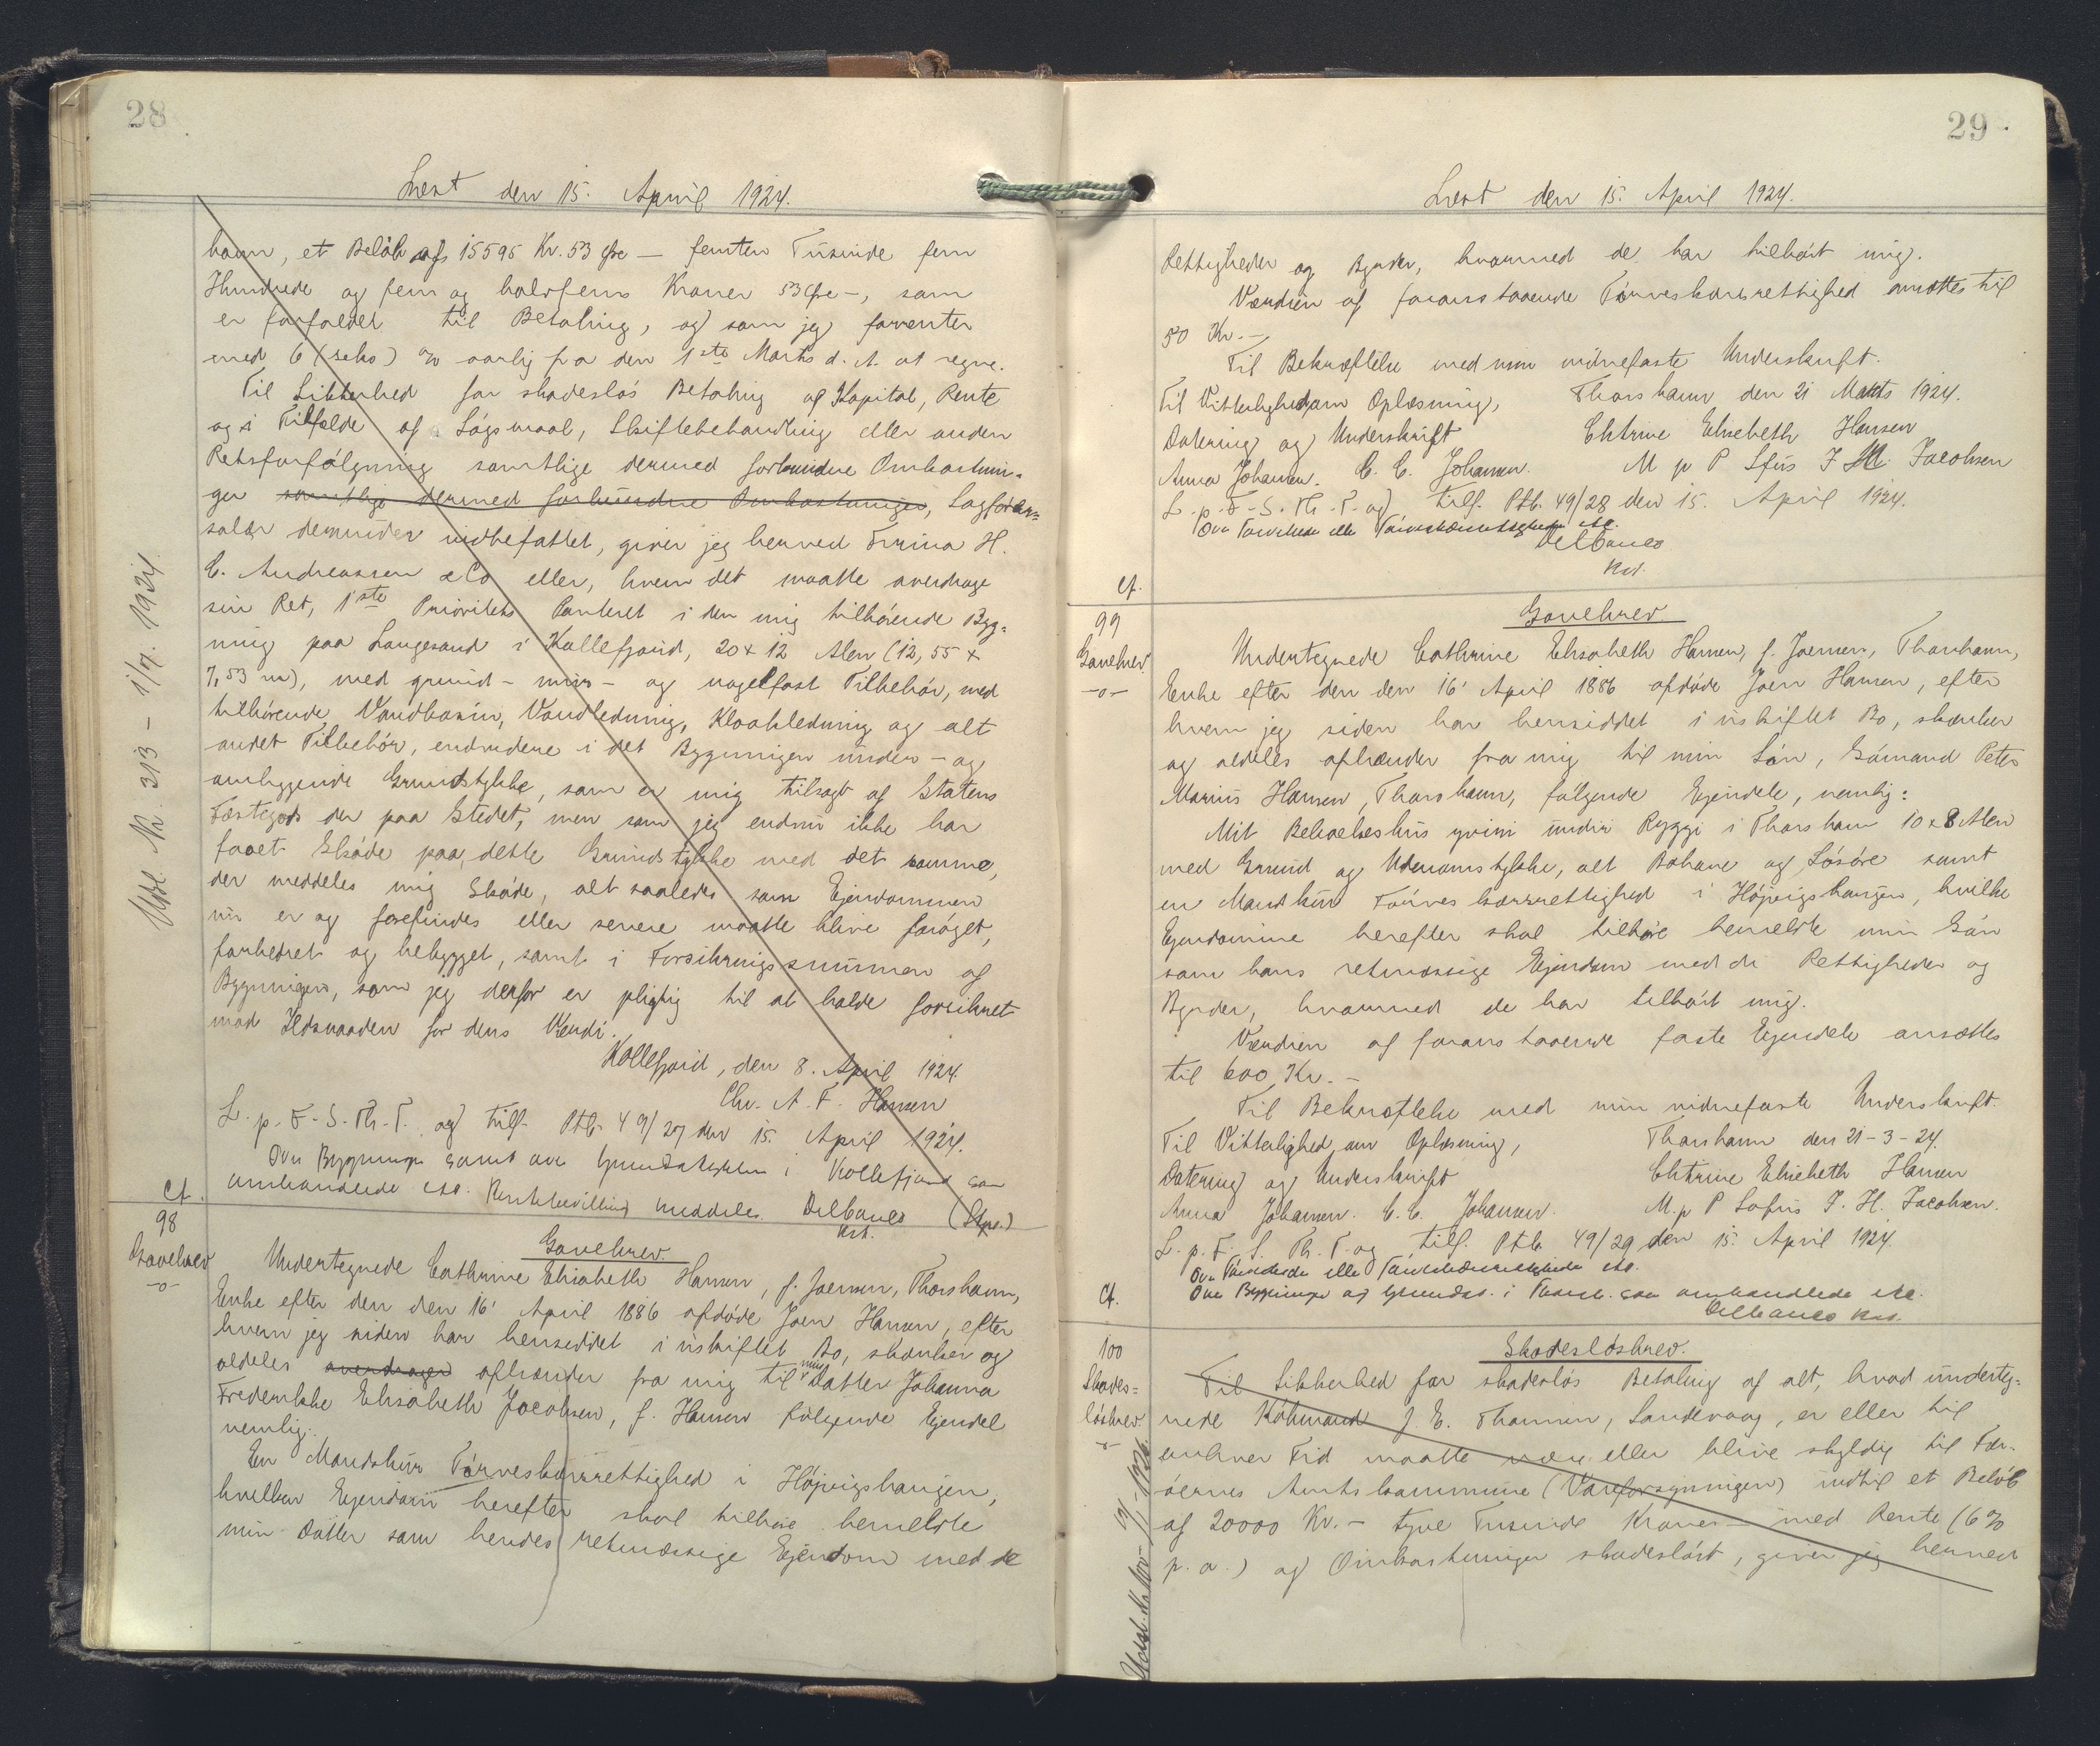 28
Læst den 15. April 1924.
havn, et Beløb af 15595 Kr. 53 Øre — femten Tusinde fem
Hundrede og fem og halvfems Kroner 53 Øre —, som
er forfaldet til Betaling, og som jeg forrenter
med 6 (seks) % aarlig fra den 1ste Marts d. A. at regne.
Til Sikkerhed for skadesløs Betaling af Kapital, Rente
og i Tilfælde af Søgsmaal, Skiftebehandling eller anden
Retsforfølgning samtlige dermed forbundne Omkostnin=
ger samtlige dermed forbundne Omkostninger, Sagfører=
salær derunder indbefattet, giver jeg herved Firma H.
C. Andreassen & Co eller, hvem det maatte overdrage
sin Ret, 1ste Prioritets Panteret i den mig tilhørende Byg=
ning paa Langesand i Kollefjord, 20 x 12 Alen (12,55 x
7,53 m), med grund- mur- og nagelfast Tilbehør, med
tilhørende Vandbasin, Vandledning, Kloakledning og alt
andet Tilbehør, endvidere i det Bygningen under- og
omliggende Grundstykke, som er mig tilsagt af Statens
Fæstegods der paa Stedet, men som jeg endnu ikke har
faaet Skøde paa, dette Grundstykke med det samme,
der meddeles mig Skøde, alt saaledes som Ejendommen
nu er og forefindes eller senere maatte blive forøget,
forbedret og bebygget, samt i Forsikringssummen af
Bygningen, som jeg derfor er pligtig til at holde forsikret
mod Ildsvaaden for dens Værdi.
Kollefjord, den 8. April 1924.
Chr. A. F. Hansen
L. p. F.-S.-Th.-T. og tilf. Ptb. 49/27 den 15. April 1924.
Ova Bygninger samt ova Grundstykker i Kollefjord som
ombandlede etc. Rentebevilling meddeles. Delbanco (Stpe.)
Kst.
Cf.
Udsl. Nr. 313 - 1/7. 1924.
98
Gavebrev
-o-
Gavebrev.
Undertegnede Cathrine Elisabeth Hansen, f. Joensen, Thorshavn,
Enke efter den den 16' April 1886 afdøde Joen Hansen, efter
hvem jeg siden har hensiddet i uskiftet Bo, skænker og
aldeles overdrager afhænder fra mig til min Datter Johanna
Frederikke Elisabeth Jacobsen, f. Hansen følgende Ejendel
nemlig:
En Mandskur Tørveskærrettighed i Højvigshaugen,
hvilken Ejendom herefter skal tilhøre bemeldte
min Datter som hendes retmæssige Ejendom med de
29
Læst den 15. April 1924.
Rettigheder og Byrder, hvormed de har tilhørt mig.
Værdien af foranstaaende Tørveskærsrettighed ansættes til
50 Kr. —
Til Bekræftelse med min vidnefaste Underskrift.
Til Vitterlighed om Oplæsning, Thorshavn den 21 Marts 1924.
Datering og Underskrift Chtrine Elisebeth Hansen
Anna Johansen. C. C. Johansen. M p P Sfus J H. Jacobsen
L. p. F.-S.-Th.-T. og tilf. Ptb. 49/28 den 15. April 1924.
Ova Tørveskær eller Tørveskærrettigheder etc.
Delbanco
Kst.
Cf.
99
Gavebrev
-o-
Gavebrev
Undertegnede Cathrine Elisabeth Hansen, f. Joensen, Thorshavn,
Enke efter den den 16' April 1886 afdøde Joen Hansen, efter
hvem jeg siden har hensiddet i uskiftet Bo, skænker
og aldeles afhænder fra mig til min Søn, Sømand Peter
Marius Hansen, Thorshavn, følgende Ejendele, nemlig:
Mit Beboelseshus yviri undir Ryggi i Thorshavn 10 x 8 Alen
med Grund og Udenomsstykke, alt Bohave og Løsøre samt
en Mandskur Tørveskærrettighed i Højvigshaugen, hvilke
Ejendomme herefter skal tilhøre bemeldte min Søn
som hans retmæssige Ejendom med de Rettigheder og
Byrder, hvormed de har tilhørt mig.
Værdien af foranstaaende faste Ejendele ansættes
til 600 Kr. —
Til Bekræftelse med min vidnefaste Underskrift.
Til Vitterlighed om Oplæsning, Thorshavn den 21-3-24.
Datering og Underskrift Chtrine Elisebeth Hansen
Anna Johansen. C. C. Johansen. M. p P Sofus J. H. Jacobsen.
L. p. F. S. Th. T. og tilf. Ptb. 49/29 den 15. April 1924
Ova Tørveskær eller Tørveskærrettigheder etc.
Ova Bygninger og Grundst. i Thorsh. som ombandlede etc.
Delbanco Kst.
Cf.
100
Skades=
løsbrev
-o-
Skadesløsbrev.
Til Sikkerhed for skadesløs Betaling af alt, hvad underteg=
nede Købmand J. E. Thomsen, Sandevaag, er eller til
enhver Tid maatte være eller blive skyldig til Fær-
øernes Amtskommune (Vareforsyningen) indtil et Beløb
af 20000 Kr. — tyve Tusinde Kroner — med Rente (6%
p. a.) og Omkostninger skadesløst, giver jeg herved